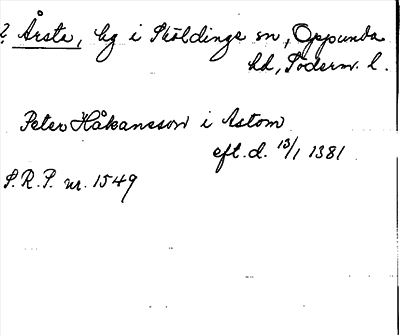 ? Årsta, bg i Sköldinge sn, Oppunda
hd, Söderm. l.
Peter Håkansson i Astom
eft. d. 13/1 1381
S.R.P. nr. 1549